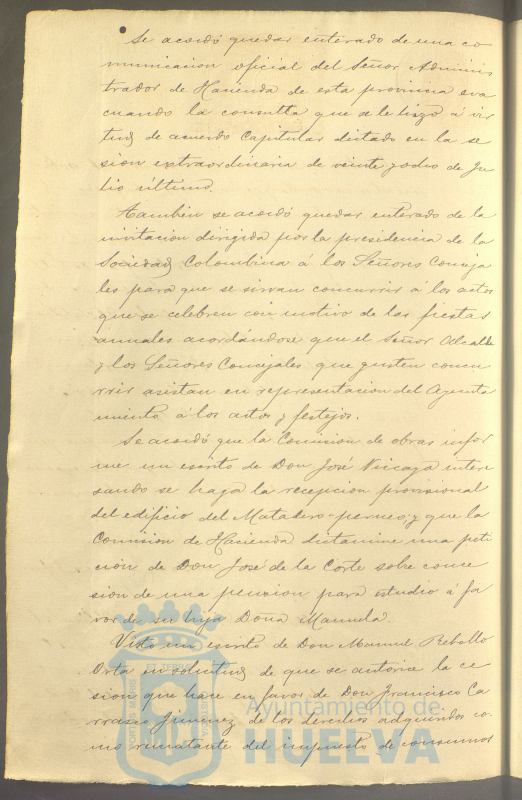 Se acordó quedar enterado de una co
municacion oficial del Señor Adminis
trador de Hacienda de esta provincia eva
cuando la consulta que se le hizo á vir
tud de acuerdo Capitular dictado en la se
sion extraordinaria de veinte y ocho de Ju
lio último.
Tambien se acordó quedar enterado de la
invitacion dirigida por la presidencia de la
Sociedad Colombina á los Señores Conceja
les para que se sirvan concurrir á los actos
que se celebren con motivo de las fiestas
anuales acordándose que el Señor Alcalde
y los Señores Concejales que gusten concu
rrir asistan en representacion del Ayunta
miento á los actos y festejos.
Se acordó que la Comision de obras infor
me un escrito de Don José Vizcaya intere
sando se haga la recepcion provisional
del edificio del Matadero-perneo; y que la
Comision de Hacienda dictamine una peti
cion de Don José de la Corte sobre conce
sion de una pension para estudio á fa
vor de su hija Doña Manuela.
Visto un escrito de Don Manuel Rebollo
Orta en solicitud de que se autorice la ce
sion que hace en favor de Don Francisco Ca
rrasco Jimenez de los derechos adquiridos co-
mo rematante del impuesto de consumos
Ayuntamiento de
HUELVA